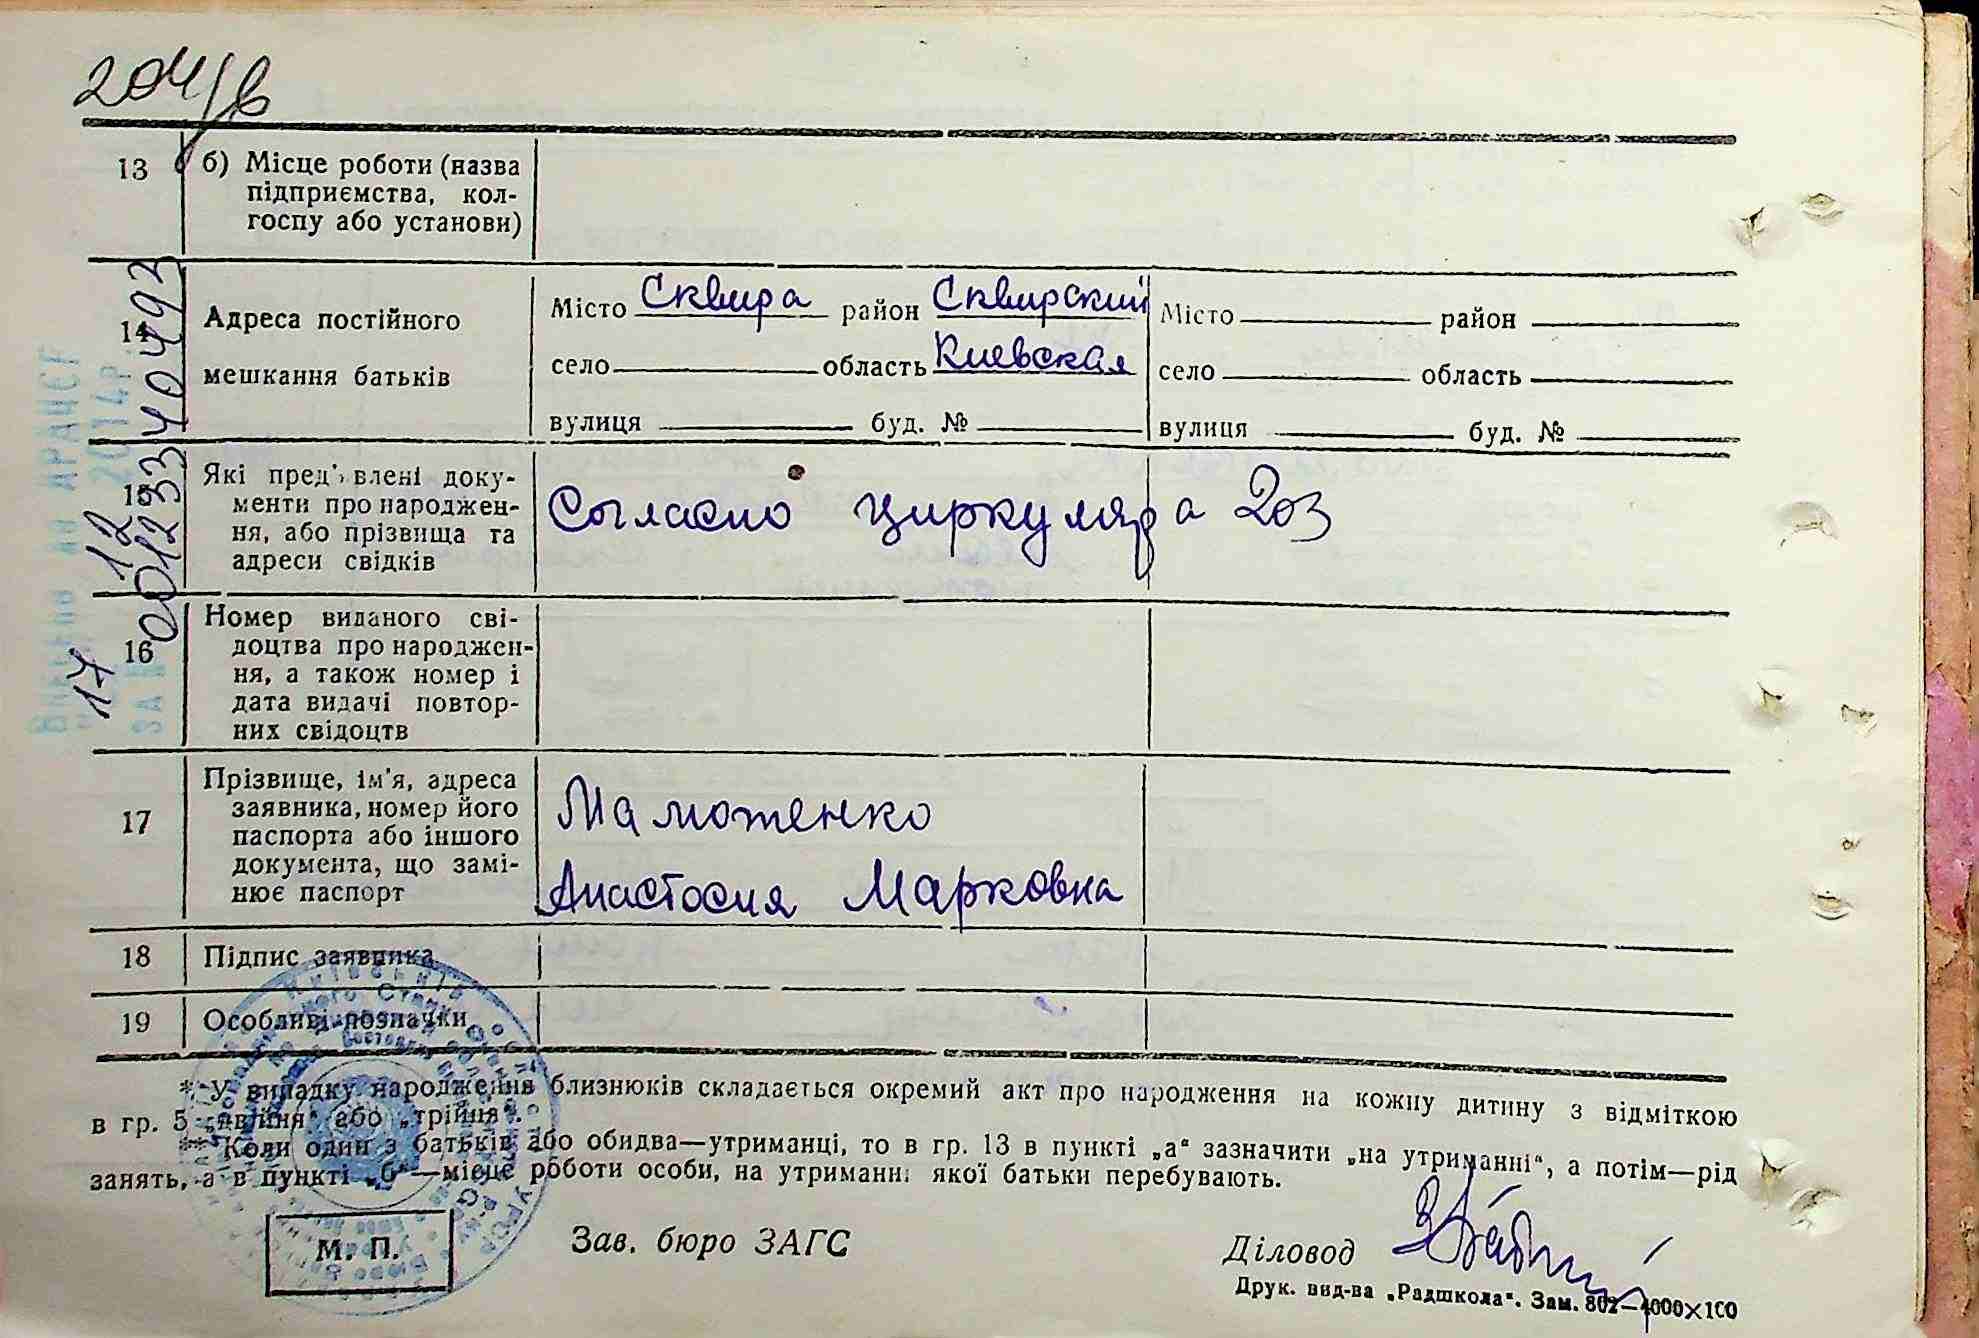 204/в
13 б) Місце роботи (назва
підприємства, кол-
госпу або установи)
14 Адреса постійного
мешкання батьків
Місто Сквира район Сквирский
село область Киевская
вулиця буд. №
Місто район
село область
вулиця буд. №
15 Які пред'явлені доку-
менти про народжен-
ня, або прізвища та
адреси свідків
Согласно циркуляра 203
16 Номер виданого сві-
доцтва про народжен-
ня, а також номер і
дата видачі повтор-
них свідоцтв
17 Прізвище, ім'я, адреса
заявника, номер його
паспорта або іншого
документа, що замі-
нює паспорт
Мамотенко
Анастосия Марковна
18 Підпис заявника
19 Особливі позначки
* У випадку народження близнюків складається окремий акт про народження на кожну дитину з відміткою
в гр. 5 „двійня“ або „трійця“.
** Коли один з батьків або обидва—утриманці, то в гр. 13 в пункті „а“ зазначити „на утриманні“, а потім—рід
занять, а в пункті „б“—місце роботи особи, на утриманні якої батьки перебувають.
М. П.
Зав. бюро ЗАГС
Діловод
Друк. вид-ва „Радшкола“. Зам. 802—4000×100
17 12 2014р.
00123340492